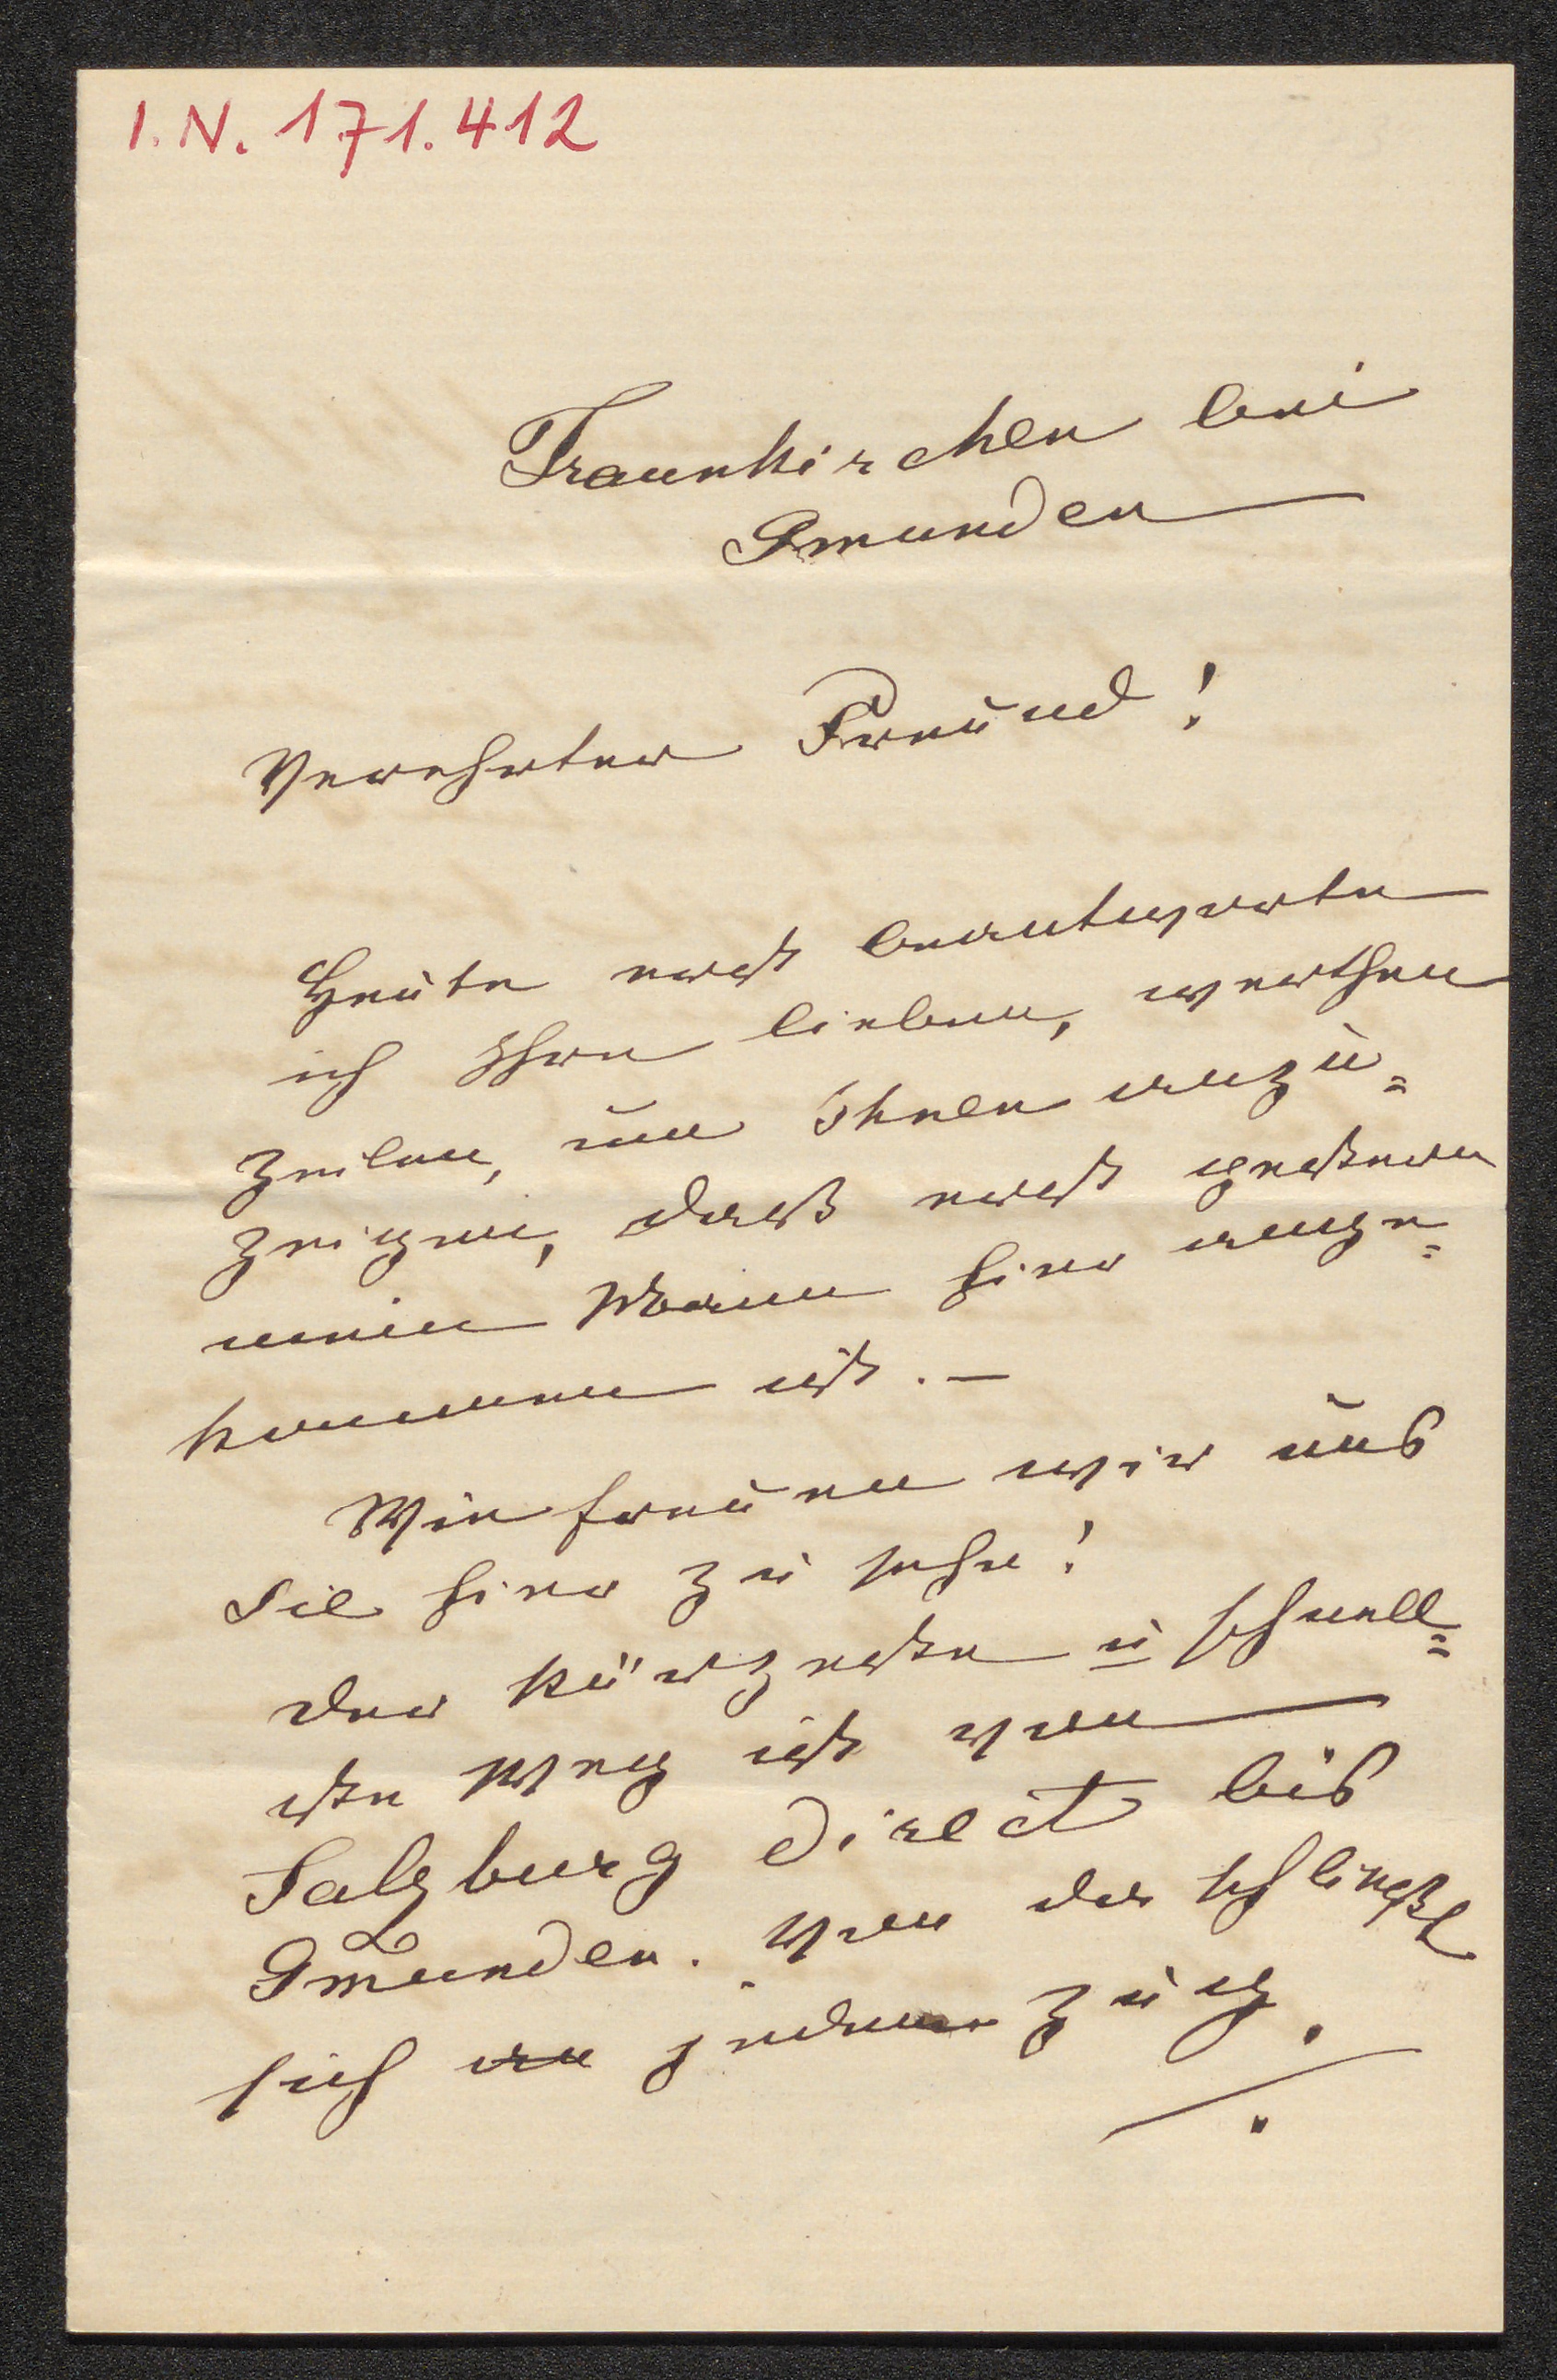 I. N. 171.412
Traunkirchen bei
Gmunden
Verehrter Freund!
Heute erst beantworte
ich Ihre lieben, werthen
Zeilen, um Ihnen anzu=
zeigen, dass erst gestern
mein Mann hier ange=
kommen ist. –
Wie freuen wir uns
Sie hier zu sehn!
der kürzeste u schnell=
ste Weg ist von
Salzburg direct bis
Gmunden. Von da schließt
sich an jedem Zug
./.